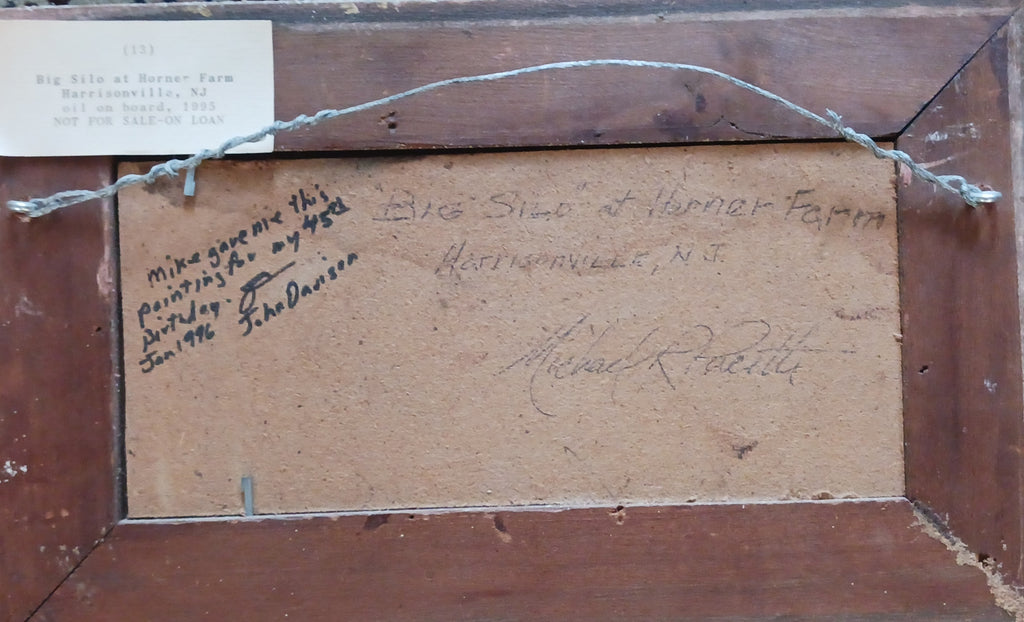 (13)
Big Silo at Horner Farm
Harrisonville, NJ
oil on board, 1995
NOT FOR SALE-ON LOAN
Mike gave me this
painting for my 45th
birthday.
Jan 1996 John Davison
"BIG SILO" at Horner Farm
HARRISONVILLE, NJ
Michael R